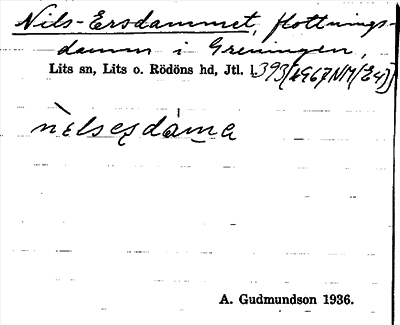 Nils-Ersdammet, flottnings-
damm i Greningen,
Lits sn, Lits o. Rödöns hd, Jtl. l. 393 [1967 NM (E4)]
nelsesdáma
A. Gudmundson 1936.